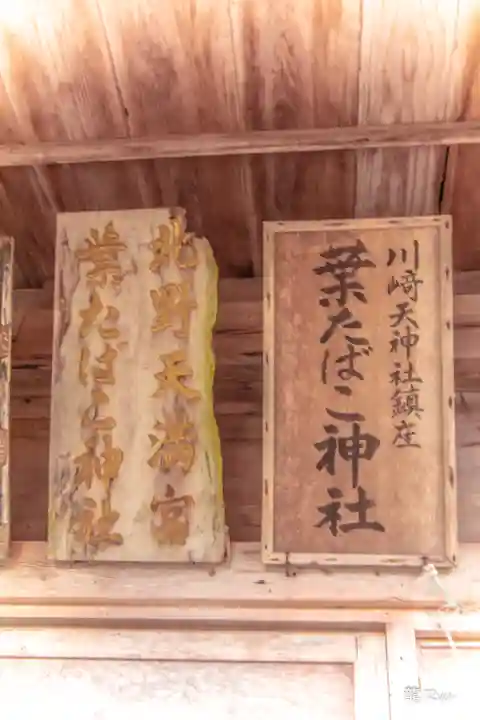 川﨑天神社鎮座
葉たばこ神社
北野天満宮
葉たばこ神社
龍